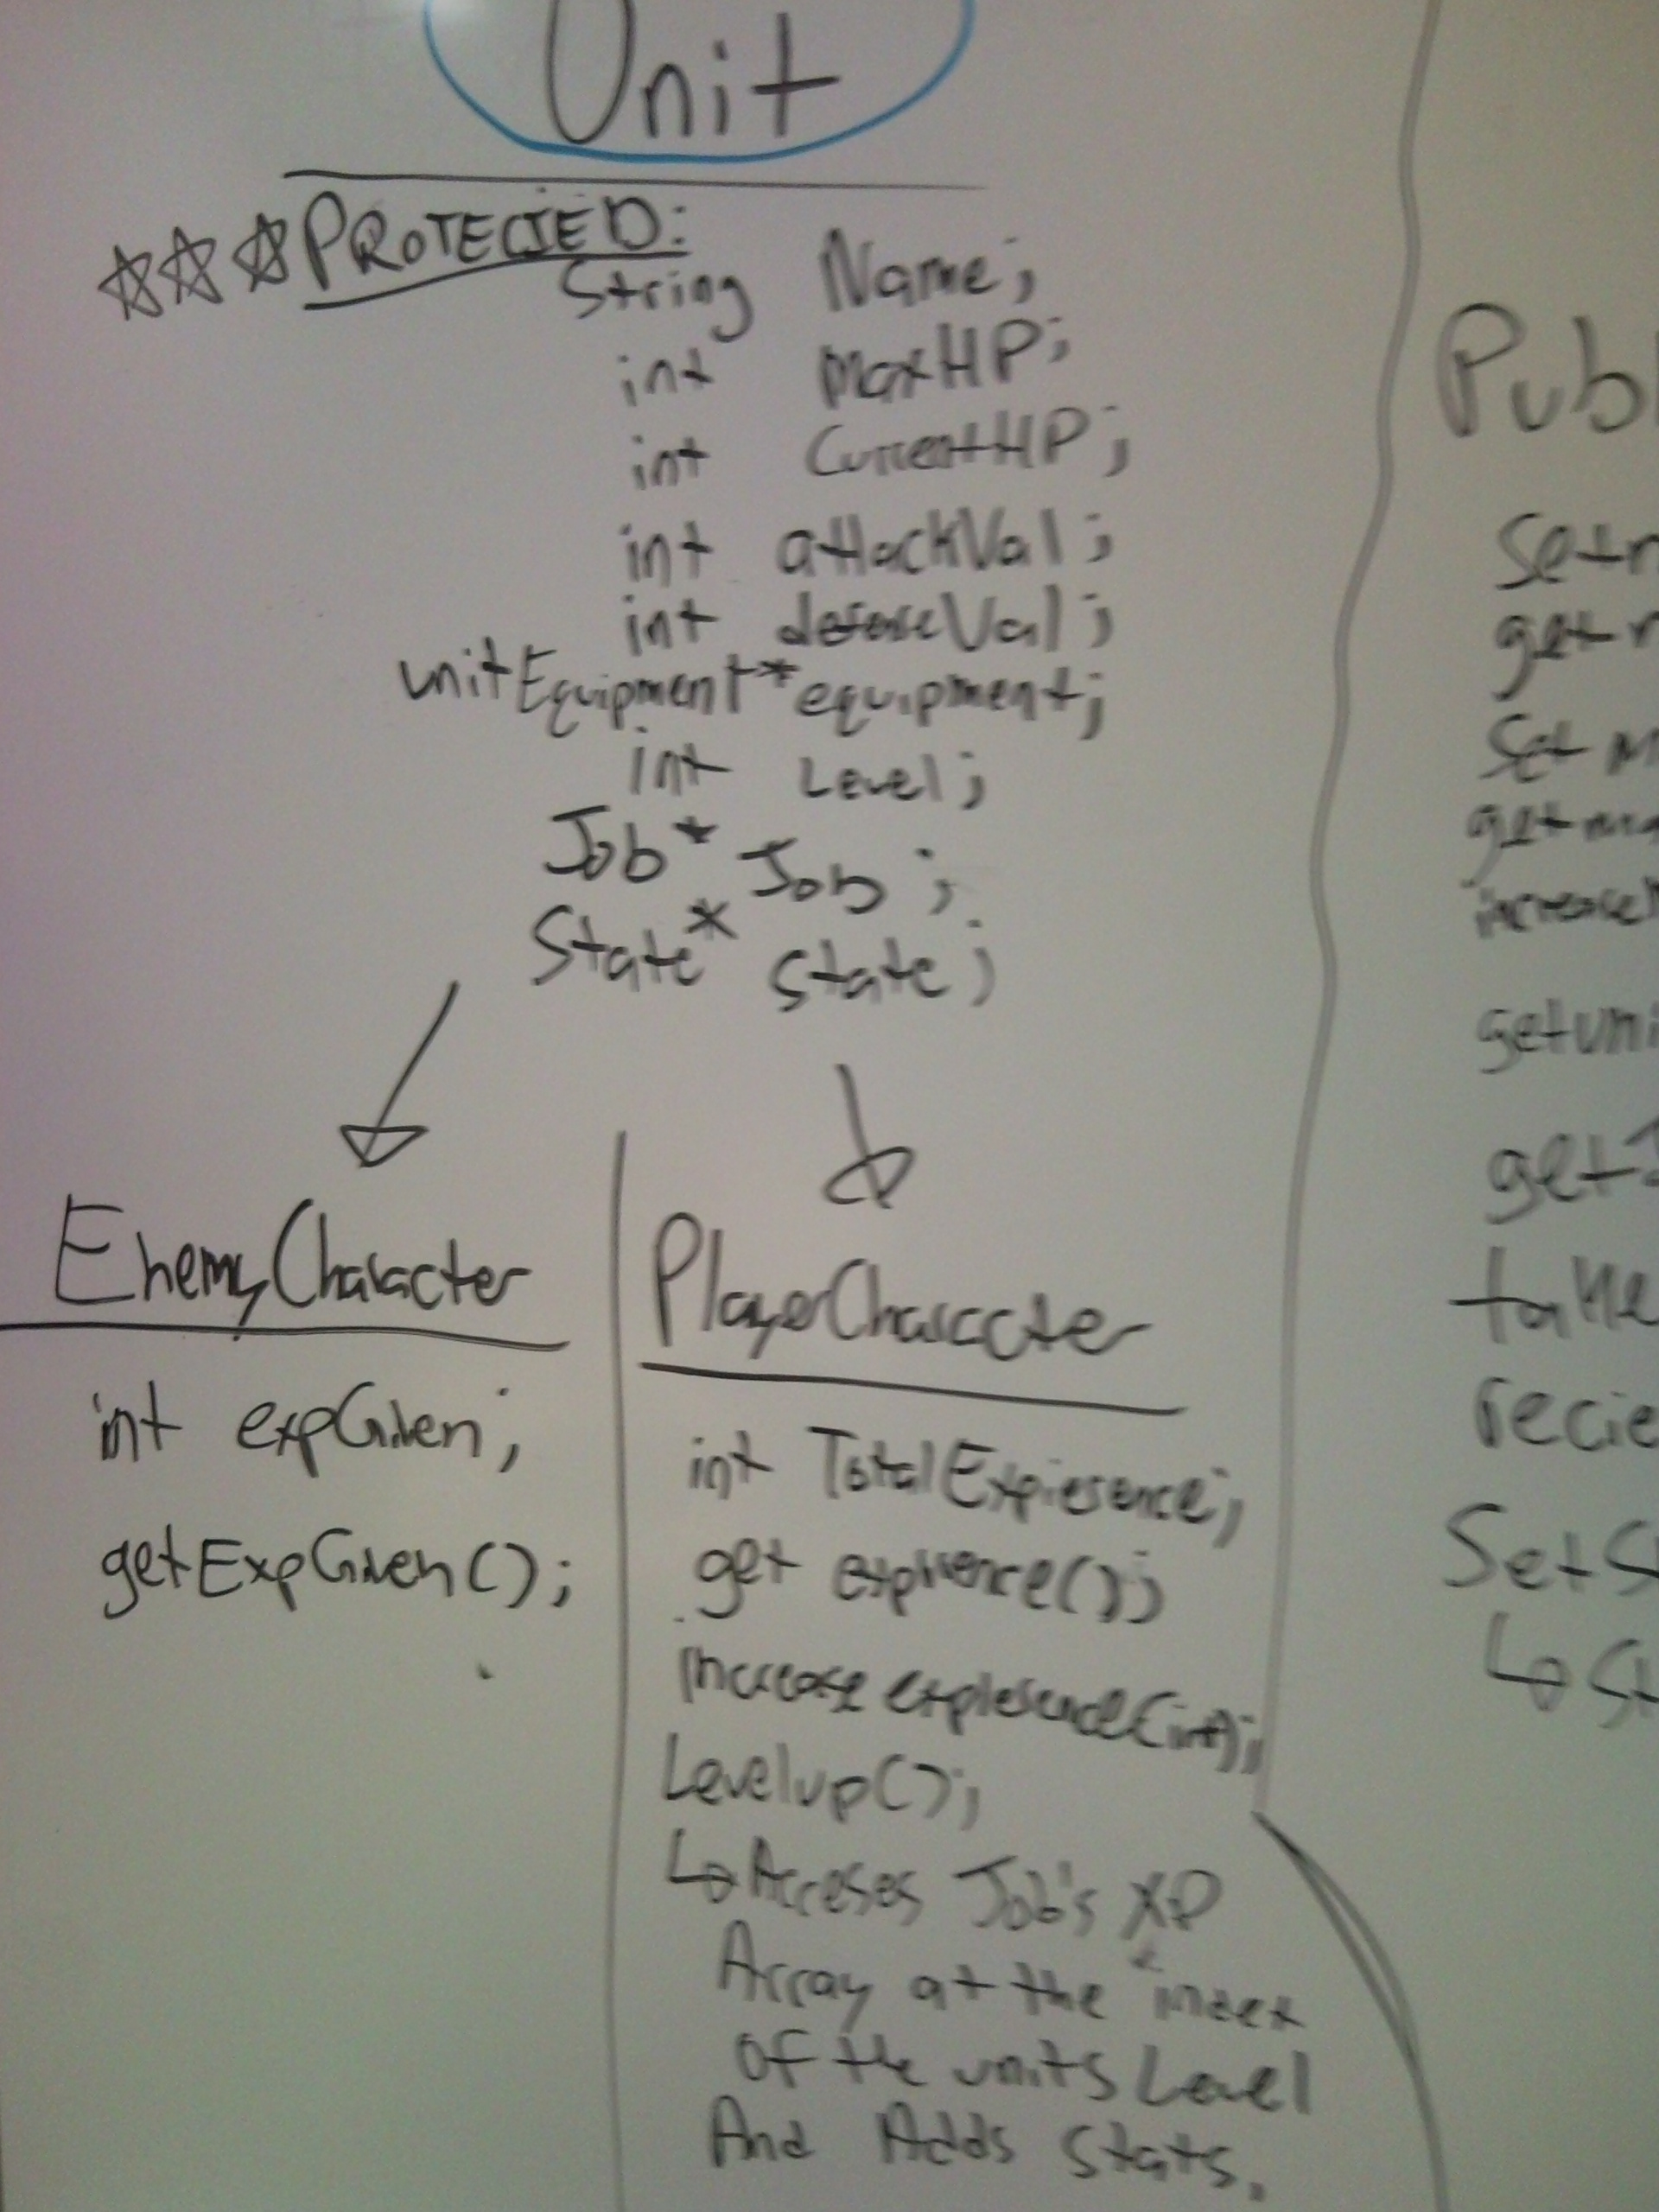 Unit
PROTECTED:
String Name;
int MaxHP;
int CurrentHP;
int attackVal;
int defenseVal;
unitEquipment* equipment;
int Level;
Job* Job;
State* state;
EnemyCharacter
int expGiven;
getExpGiven();
PlayerCharacter
int TotalExpiesence;
get expirence();
Increase expiesence(int);
Levelup();
↳ Acceses Job's XP
Array at the index
of the units Level
And Adds Stats.
Publ
Setn
getn
Set m
getma
increase
getuni
get
take
recie
SetS
↳ St